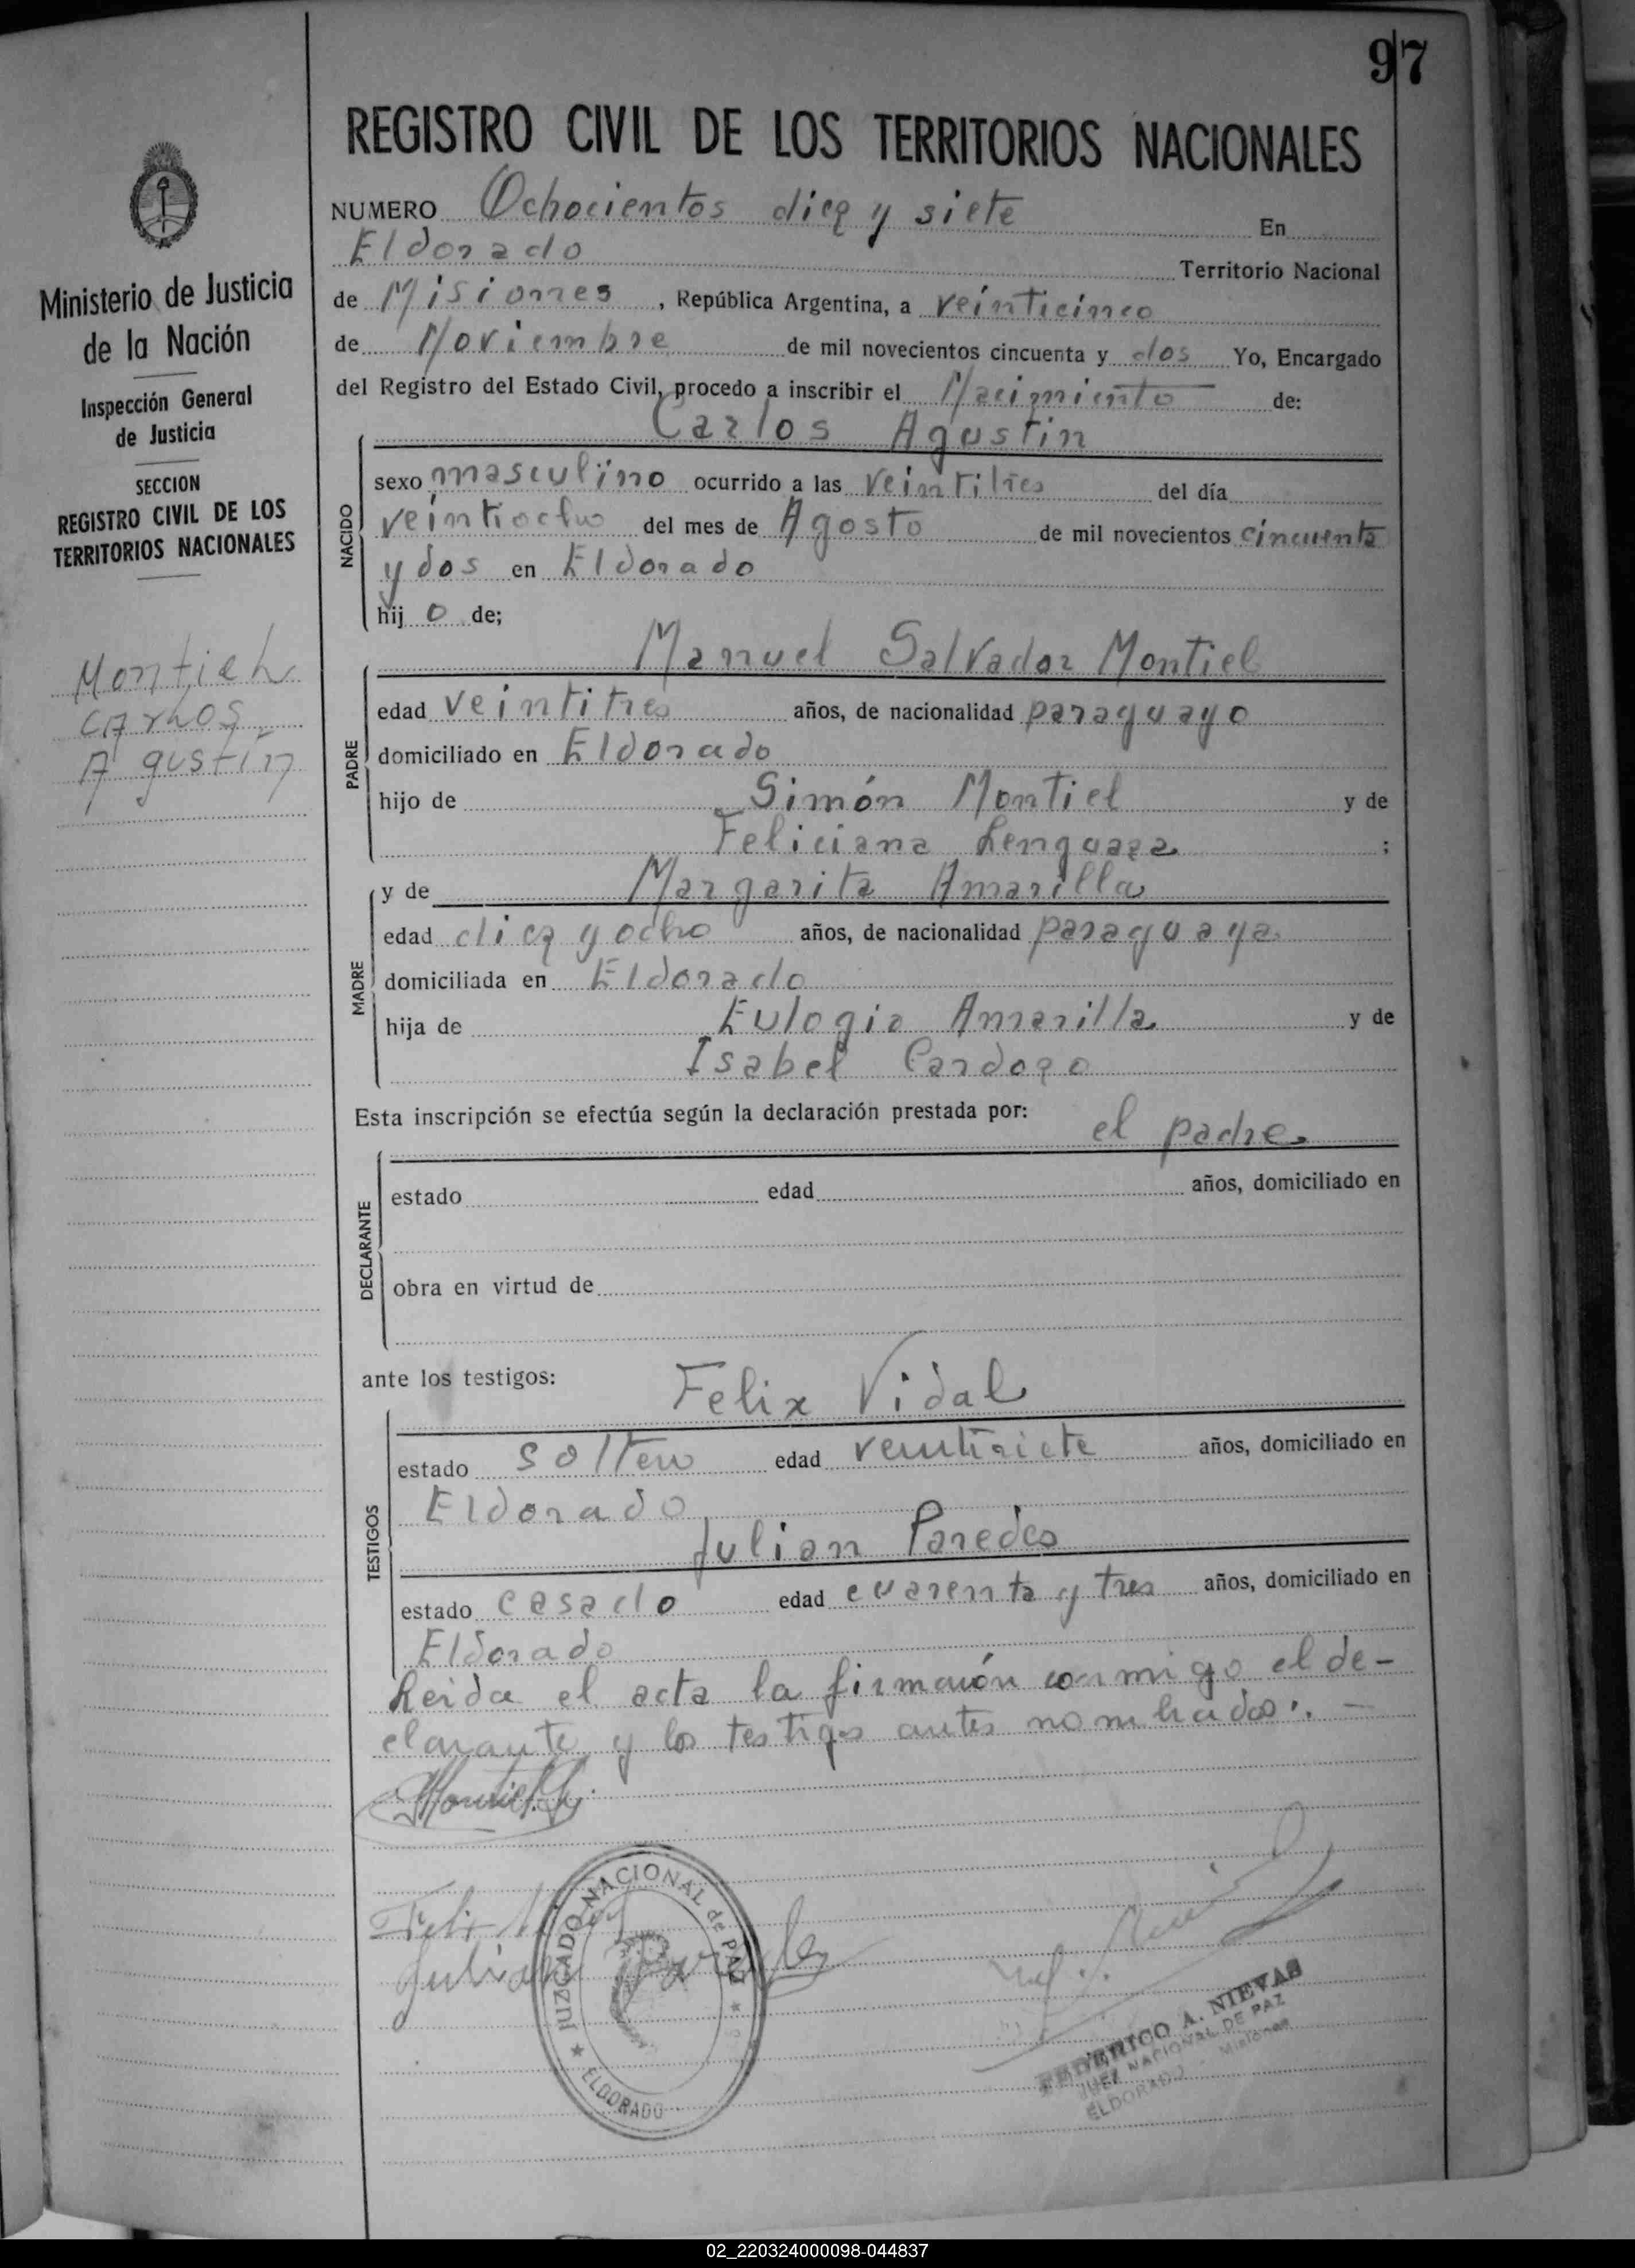 97
REGISTRO CIVIL DE LOS TERRITORIOS NACIONALES
Ministerio de Justicia
de la Nación
Inspección General
de Justicia
SECCION
REGISTRO CIVIL DE LOS
TERRITORIOS NACIONALES
Montiel
CARLOS
Agustín
NUMERO Ochocientos diez y siete En
Eldorado Territorio Nacional
de Misiones, República Argentina, a veinticinco
de Noviembre de mil novecientos cincuenta y dos Yo, Encargado
del Registro del Estado Civil, procedo a inscribir el Nacimiento de:
Carlos Agustin
NACIDO
sexo masculino ocurrido a las veintitres del día
veintiocho del mes de Agosto de mil novecientos cincuenta
y dos en Eldorado
hijo de;
Manuel Salvador Montiel
PADRE
edad veintitres años, de nacionalidad paraguayo
domiciliado en Eldorado
hijo de Simón Montiel y de
Feliciana Lenguaza ;
y de Margarita Amarilla
MADRE
edad diez y ocho años, de nacionalidad paraguaya
domiciliada en Eldorado
hija de Eulogio Amarilla y de
Isabel Cardozo
Esta inscripción se efectúa según la declaración prestada por:
el padre
DECLARANTE
estado edad años, domiciliado en
obra en virtud de
ante los testigos:
Felix Vidal
TESTIGOS
estado soltero edad veintisiete años, domiciliado en
Eldorado
Julian Paredes
estado casado edad cuarenta y tres años, domiciliado en
Eldorado
Leida el acta la firmarón conmigo el de-
clarante y los testigos antes nombrados:. —
Montiel
Felix
Julian
JUZGADO NACIONAL de PAZ
ELDORADO
FEDERICO A. NIEVAS
JUEZ NACIONAL DE PAZ
ELDORADO Misiones
02_220324000098-044837